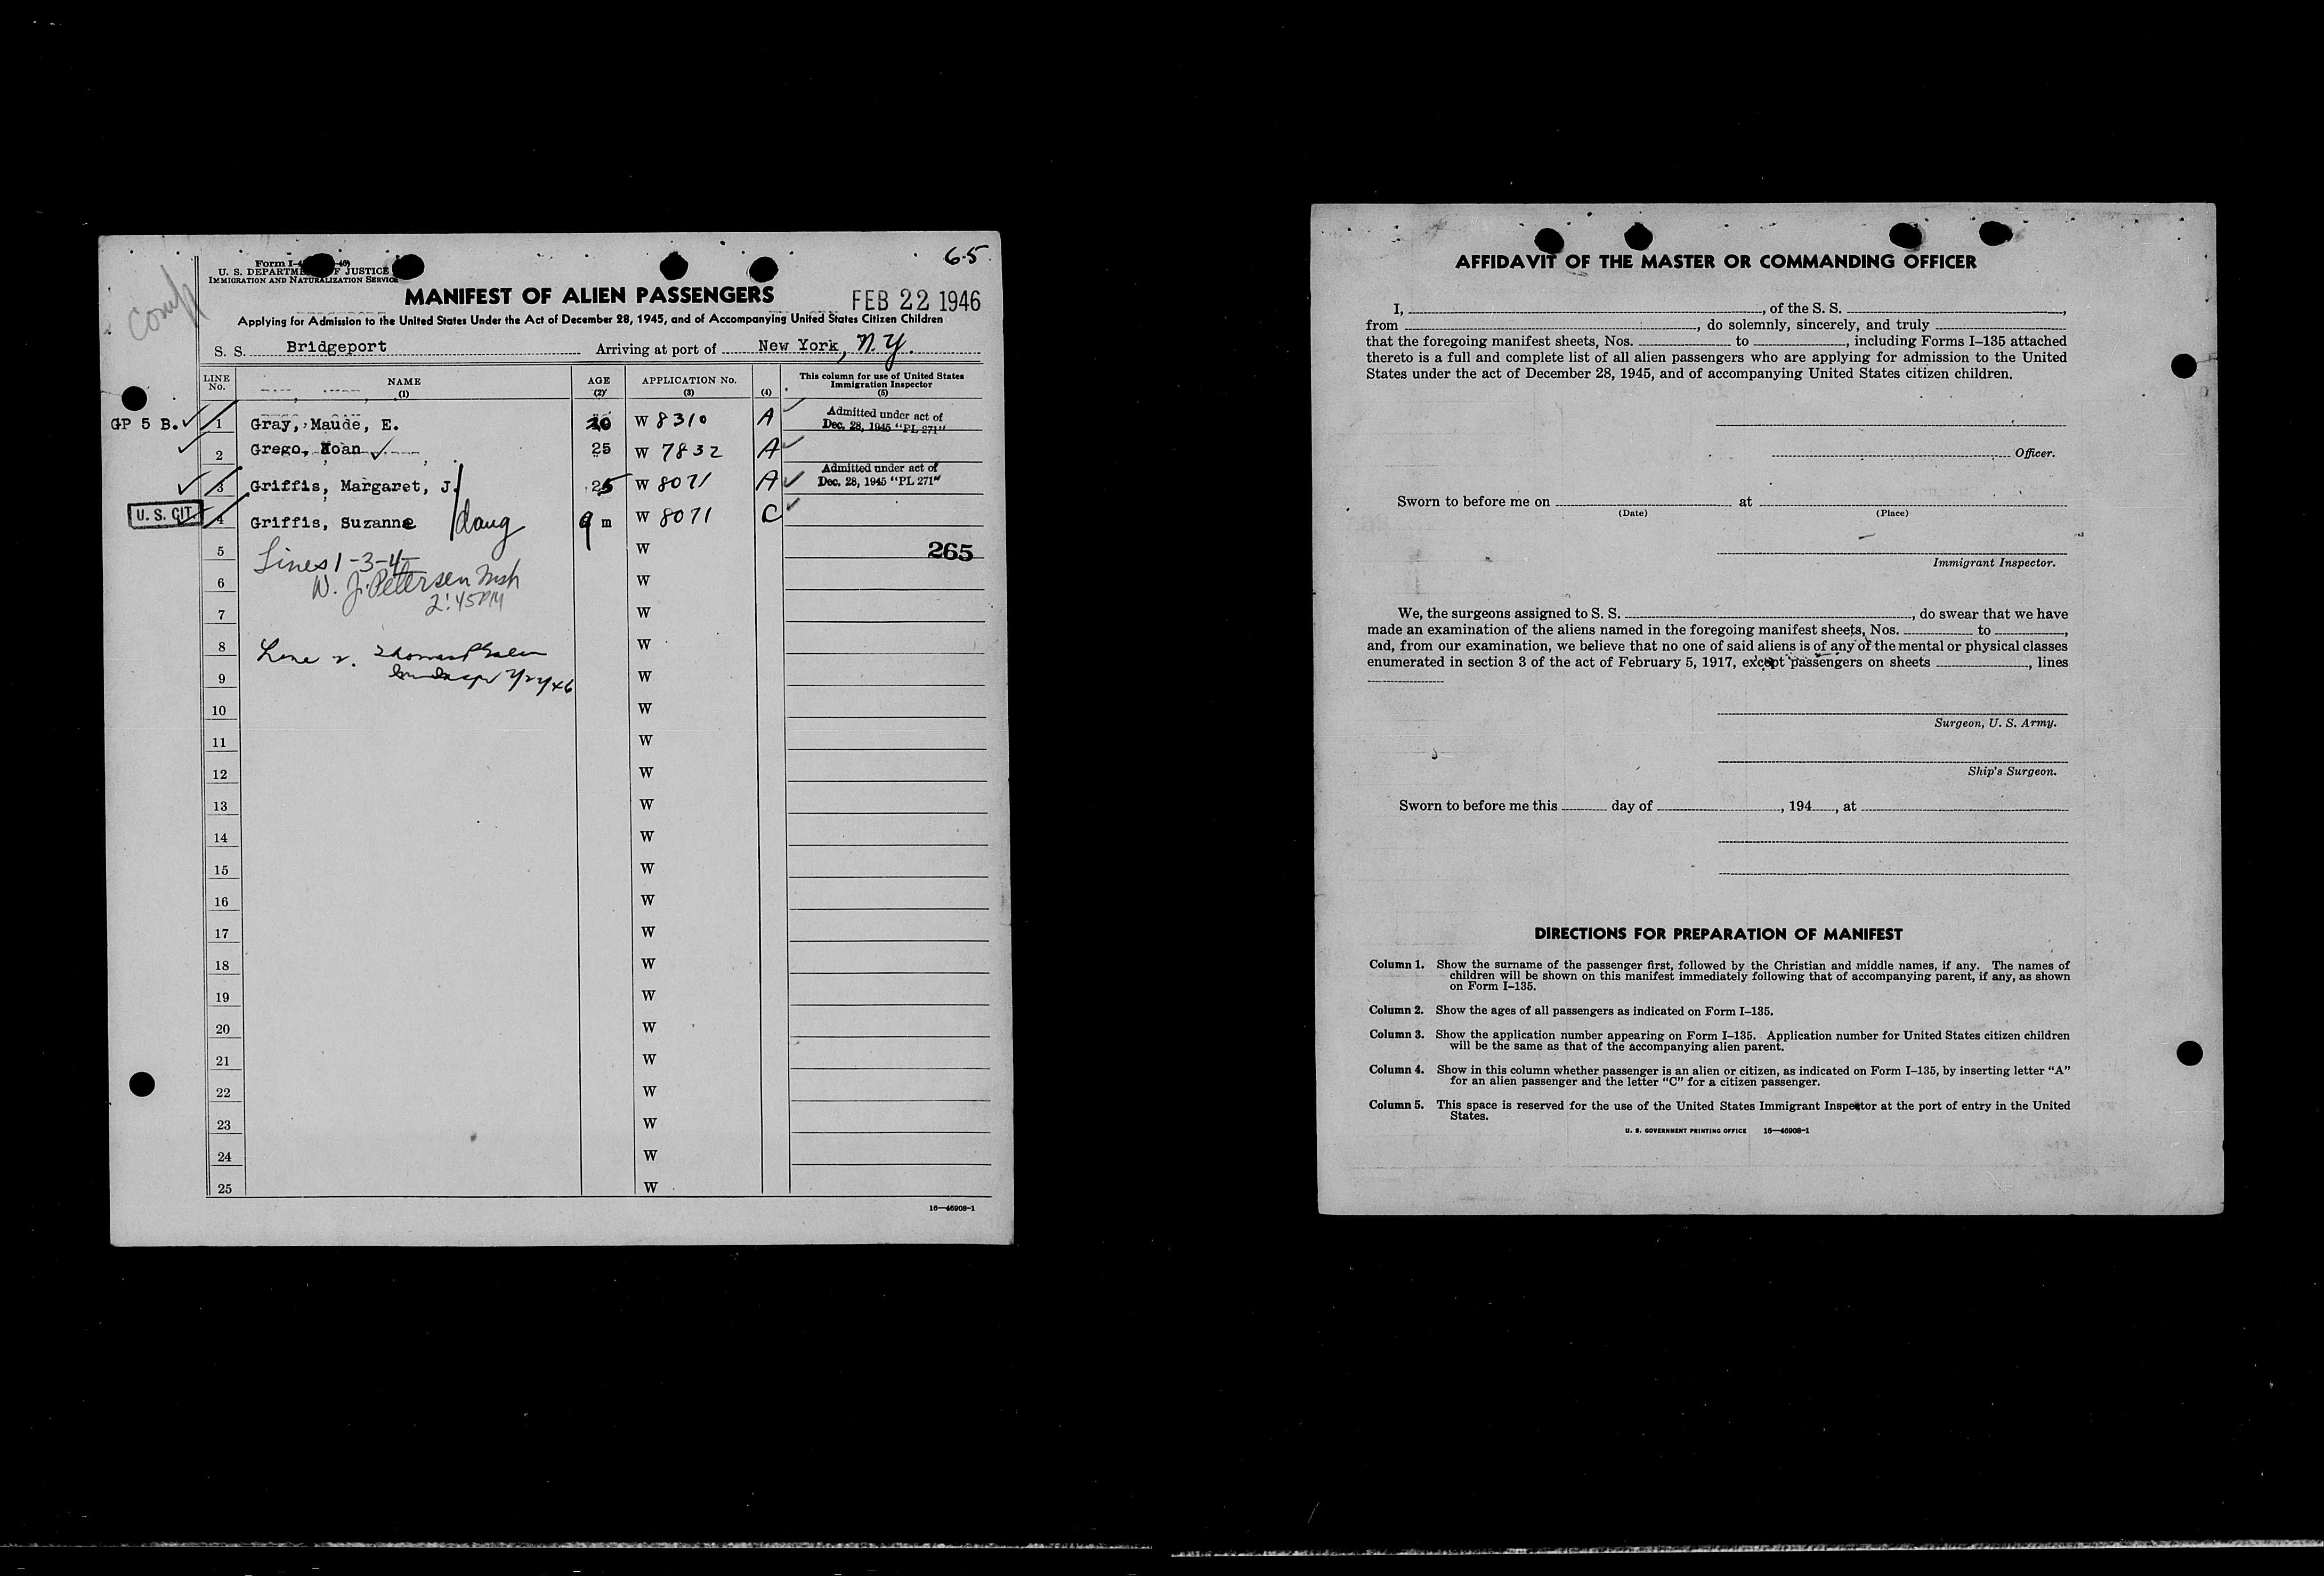 65
Comp
Form I-4
U. S. DEPARTMENT OF JUSTICE
IMMIGRATION AND NATURALIZATION SERVICE
MANIFEST OF ALIEN PASSENGERS
FEB 22 1946
Applying for Admission to the United States Under the Act of December 28, 1945, and of Accompanying United States Citizen Children
S. S. Bridgeport Arriving at port of New York, N.Y.
LINE No. NAME (1) AGE (2) APPLICATION No. (3) (4) This column for use of United States Immigration Inspector (5)
GP 5 B. 1 Gray, Maude, E. W 8310 A Admitted under act of Dec. 28, 1945 "PL 271"
2 Grego, Joan 25 W 7832 A
3 Griffis, Margaret, J. 25 W 8071 A Admitted under act of Dec. 28, 1945 "PL 271"
U. S. CIT. 4 Griffis, Suzanne daug 9 m W 8071 C
5 W 265
Lines 1-3-4
6 W
W. J. Petersen Insp
2:45 PM
7 W
8 W
Line 2.
9 W
10 W
11 W
12 W
13 W
14 W
15 W
16 W
17 W
18 W
19 W
20 W
21 W
22 W
23 W
24 W
25 W
16—46908-1
AFFIDAVIT OF THE MASTER OR COMMANDING OFFICER
I, , of the S. S. ,
from , do solemnly, sincerely, and truly
that the foregoing manifest sheets, Nos. to , including Forms I-135 attached
thereto is a full and complete list of all alien passengers who are applying for admission to the United
States under the act of December 28, 1945, and of accompanying United States citizen children.
Officer.
Sworn to before me on at
(Date) (Place)
Immigrant Inspector.
We, the surgeons assigned to S. S. , do swear that we have
made an examination of the aliens named in the foregoing manifest sheets, Nos. to ,
and, from our examination, we believe that no one of said aliens is of any of the mental or physical classes
enumerated in section 3 of the act of February 5, 1917, except passengers on sheets , lines
Surgeon, U. S. Army.
Ship's Surgeon.
Sworn to before me this day of , 194 , at
DIRECTIONS FOR PREPARATION OF MANIFEST
Column 1. Show the surname of the passenger first, followed by the Christian and middle names, if any. The names of
children will be shown on this manifest immediately following that of accompanying parent, if any, as shown
on Form I-135.
Column 2. Show the ages of all passengers as indicated on Form I-135.
Column 3. Show the application number appearing on Form I-135. Application number for United States citizen children
will be the same as that of the accompanying alien parent.
Column 4. Show in this column whether passenger is an alien or citizen, as indicated on Form I-135, by inserting letter "A"
for an alien passenger and the letter "C" for a citizen passenger.
Column 5. This space is reserved for the use of the United States Immigrant Inspector at the port of entry in the United
States.
U. S. GOVERNMENT PRINTING OFFICE 16—46908-1